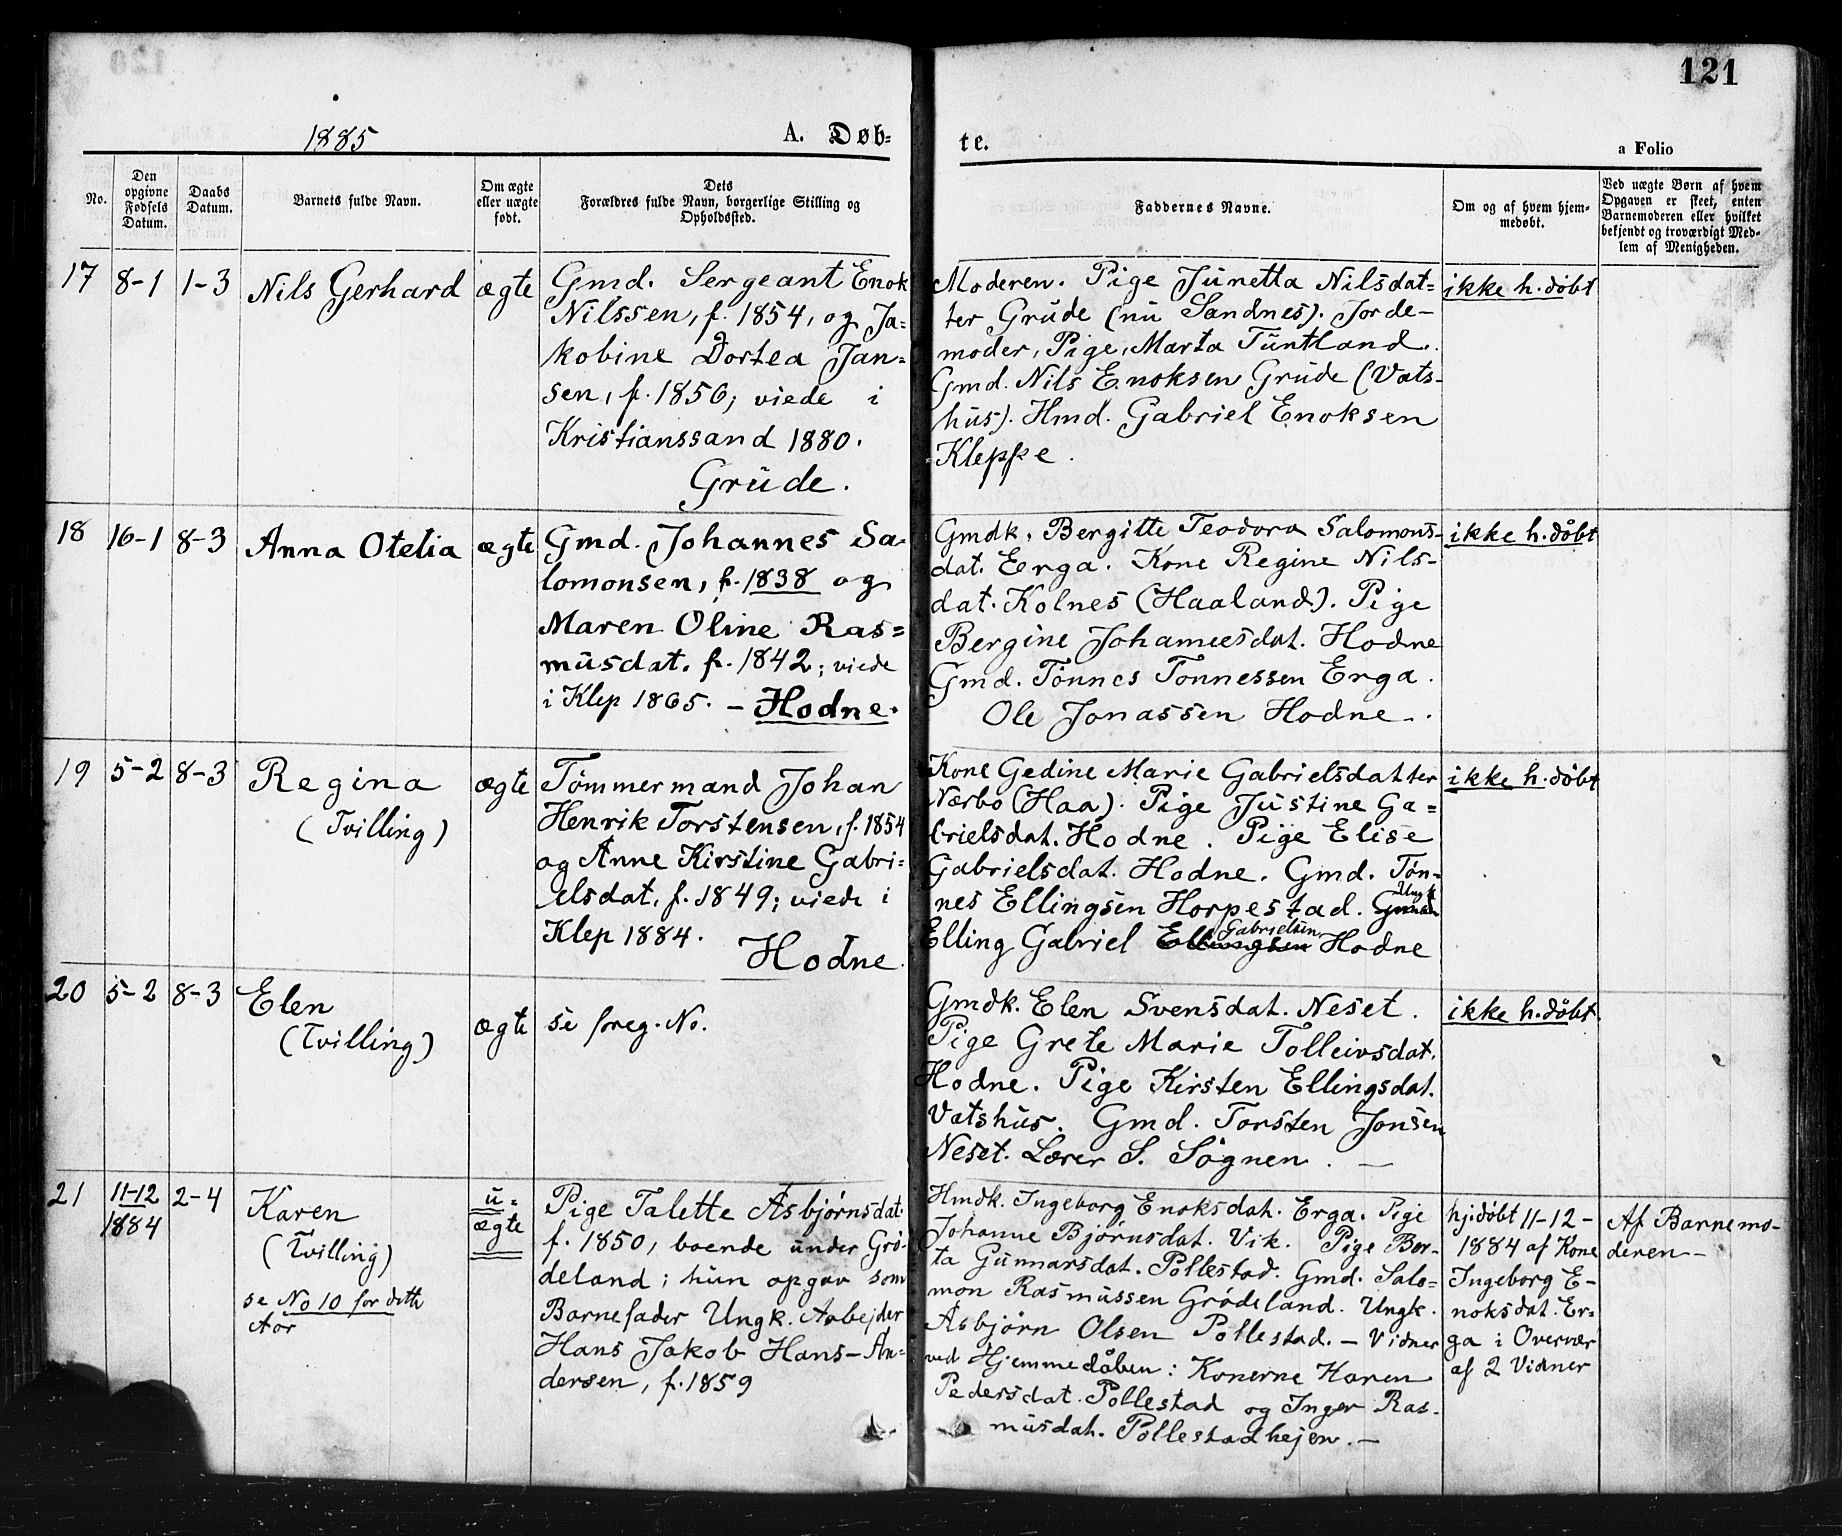 121
1885
A. Døb=
te.
a Folio
No.
Den
opgivne
Fødsels
Datum.
Daabs
Datum.
Barnets fulde Navn.
Om ægte
eller uægte
født.
Dets
Forældres fulde Navn, borgerlige Stilling og
Opholdssted.
Faddernes Navne.
Om og af hvem hjem-
medøbt.
Ved uægte Børn af hvem
Opgaven er skeet, enten
Barnemoderen eller hvilket
bekjendt og troværdigt Med-
lem af Menigheden.
17
8-1
1-3
Nils Gerhard
ægte
Gmd. Sergeant Enok
Nilssen, f. 1854, og Ja=
kobine Dortea Jan=
sen, f. 1856; viede i
Kristianssand 1880.
Grude.
Moderen. Pige Junetta Nilsdat=
ter Grude (nu Sandnes). Jorde-
moder, Pige, Marta Tuntland.
Gmd. Nils Enoksen Grude (Vats-
hus). Hmd. Gabriel Enoksen
Kleppe.
ikke h. døbt
18
16-1
8-3
Anna Otelia
ægte
Gmd. Johannes Sa-
lomonsen, f. 1838 og
Maren Oline Ras=
musdat. f. 1842; viede
i Klep 1865. - Hodne.
Gmdk. Bergitte Teodora Salomons-
dat. Erga. Kone Regine Nils-
dat. Kolnes (Haaland). Pige
Bergine Johannesdat. Hodne
Gmd. Tønnes Tønnessen Erga.
Ole Jonassen Hodne.
ikke h. døbt
19
5-2
8-3
Regina
(Tvilling)
ægte
Tømmermand Johan
Henrik Torstensen, f. 1854
og Anne Kirstine Gabri-
elsdat. f. 1849; viede i
Klep 1884.
Hodne.
Kone Gedine Marie Gabrielsdatter
Nærbo (Haa). Pige Justine Ga=
brielsdat. Hodne. Pige Elise
Gabrielsdat. Hodne. Gmd. Tøn-
nes Ellingsen Horpestad. Ungk
Elling Gabriel Ellingsen Gabrielsen Hodne
ikke h. døbt
20
5-2
8-3
Elen
(Tvilling)
ægte
se foreg. No.
Gmdk. Elen Svensdat. Neset.
Pige Grete Marie Tolleivsdat.
Hodne. Pige Kirsten Ellingsdat.
Vatshus. Gmd. Torsten Jonsen
Neset. Lærer S. Søgnen. -
ikke h. døbt.
21
11-12
1884
2-4
Karen
(Tvilling)
se No 10 for dette
Aar
u=
ægte
Pige Talette Asbjørnsdat.
f. 1850, boende under Grø-
deland; hun opgav som
Barnefader Ungk. Arbejder
Hans Jakob Hans-An=
dersen, f. 1859
Hmdk. Ingeborg Enoksdat. Erga. Pige
Johanne Bjørnsdat. Vik. Pige Ber-
ta Gunnarsdat. Pollestad. Gmd. Salo-
mon Rasmussen Grødeland. Ungk.
Asbjørn Olsen Pollestad. - Vidner
ved Hjemmedåben: Konerne Karen
Pedersdat. Pollestad og Inger Ras-
musdat. Pollestadhejen. -
hj.døbt 11-12-
1884 af Kone
Ingeborg E-
noksdat. Er-
ga i Overvær
af 2 Vidner
Af Barnemo-
deren -